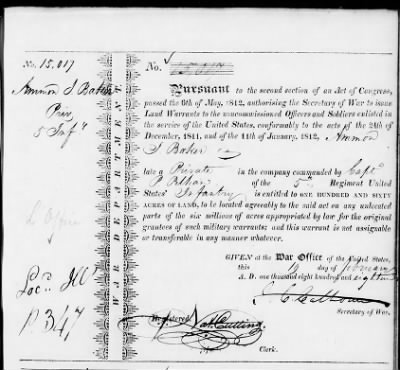 No. 15,017
Ammon S Baker
Priv
5 Inf
Loc. Ill
P 347
WAR DEPARTMENT
No. 15017
Pursuant to the second section of an Act of Congress,
passed the 6th of May, 1812, authorising the Secretary of War to issue
Land Warrants to the noncommissioned Officers and Soldiers enlisted in
the service of the United States, conformably to the acts of the 24th of
December, 1811, and of the 11th of January, 1812, Ammon
S Baker
late a Private in the company commanded by Capt
of the 5th Regiment United
States Infantry is entitled to one hundred and sixty
acres of land, to be located agreeably to the said act on any unlocated
parts of the six millions of acres appropriated by law for the original
grantees of such military warrants; and this warrant is not assignable
or transferable in any manner whatever.
GIVEN at the War Office of the United States,
this day of February
A. D. one thousand eight hundred and eighteen
J. C. Calhoun
Secretary of War.
Registered Nat. Cutting
Clerk.